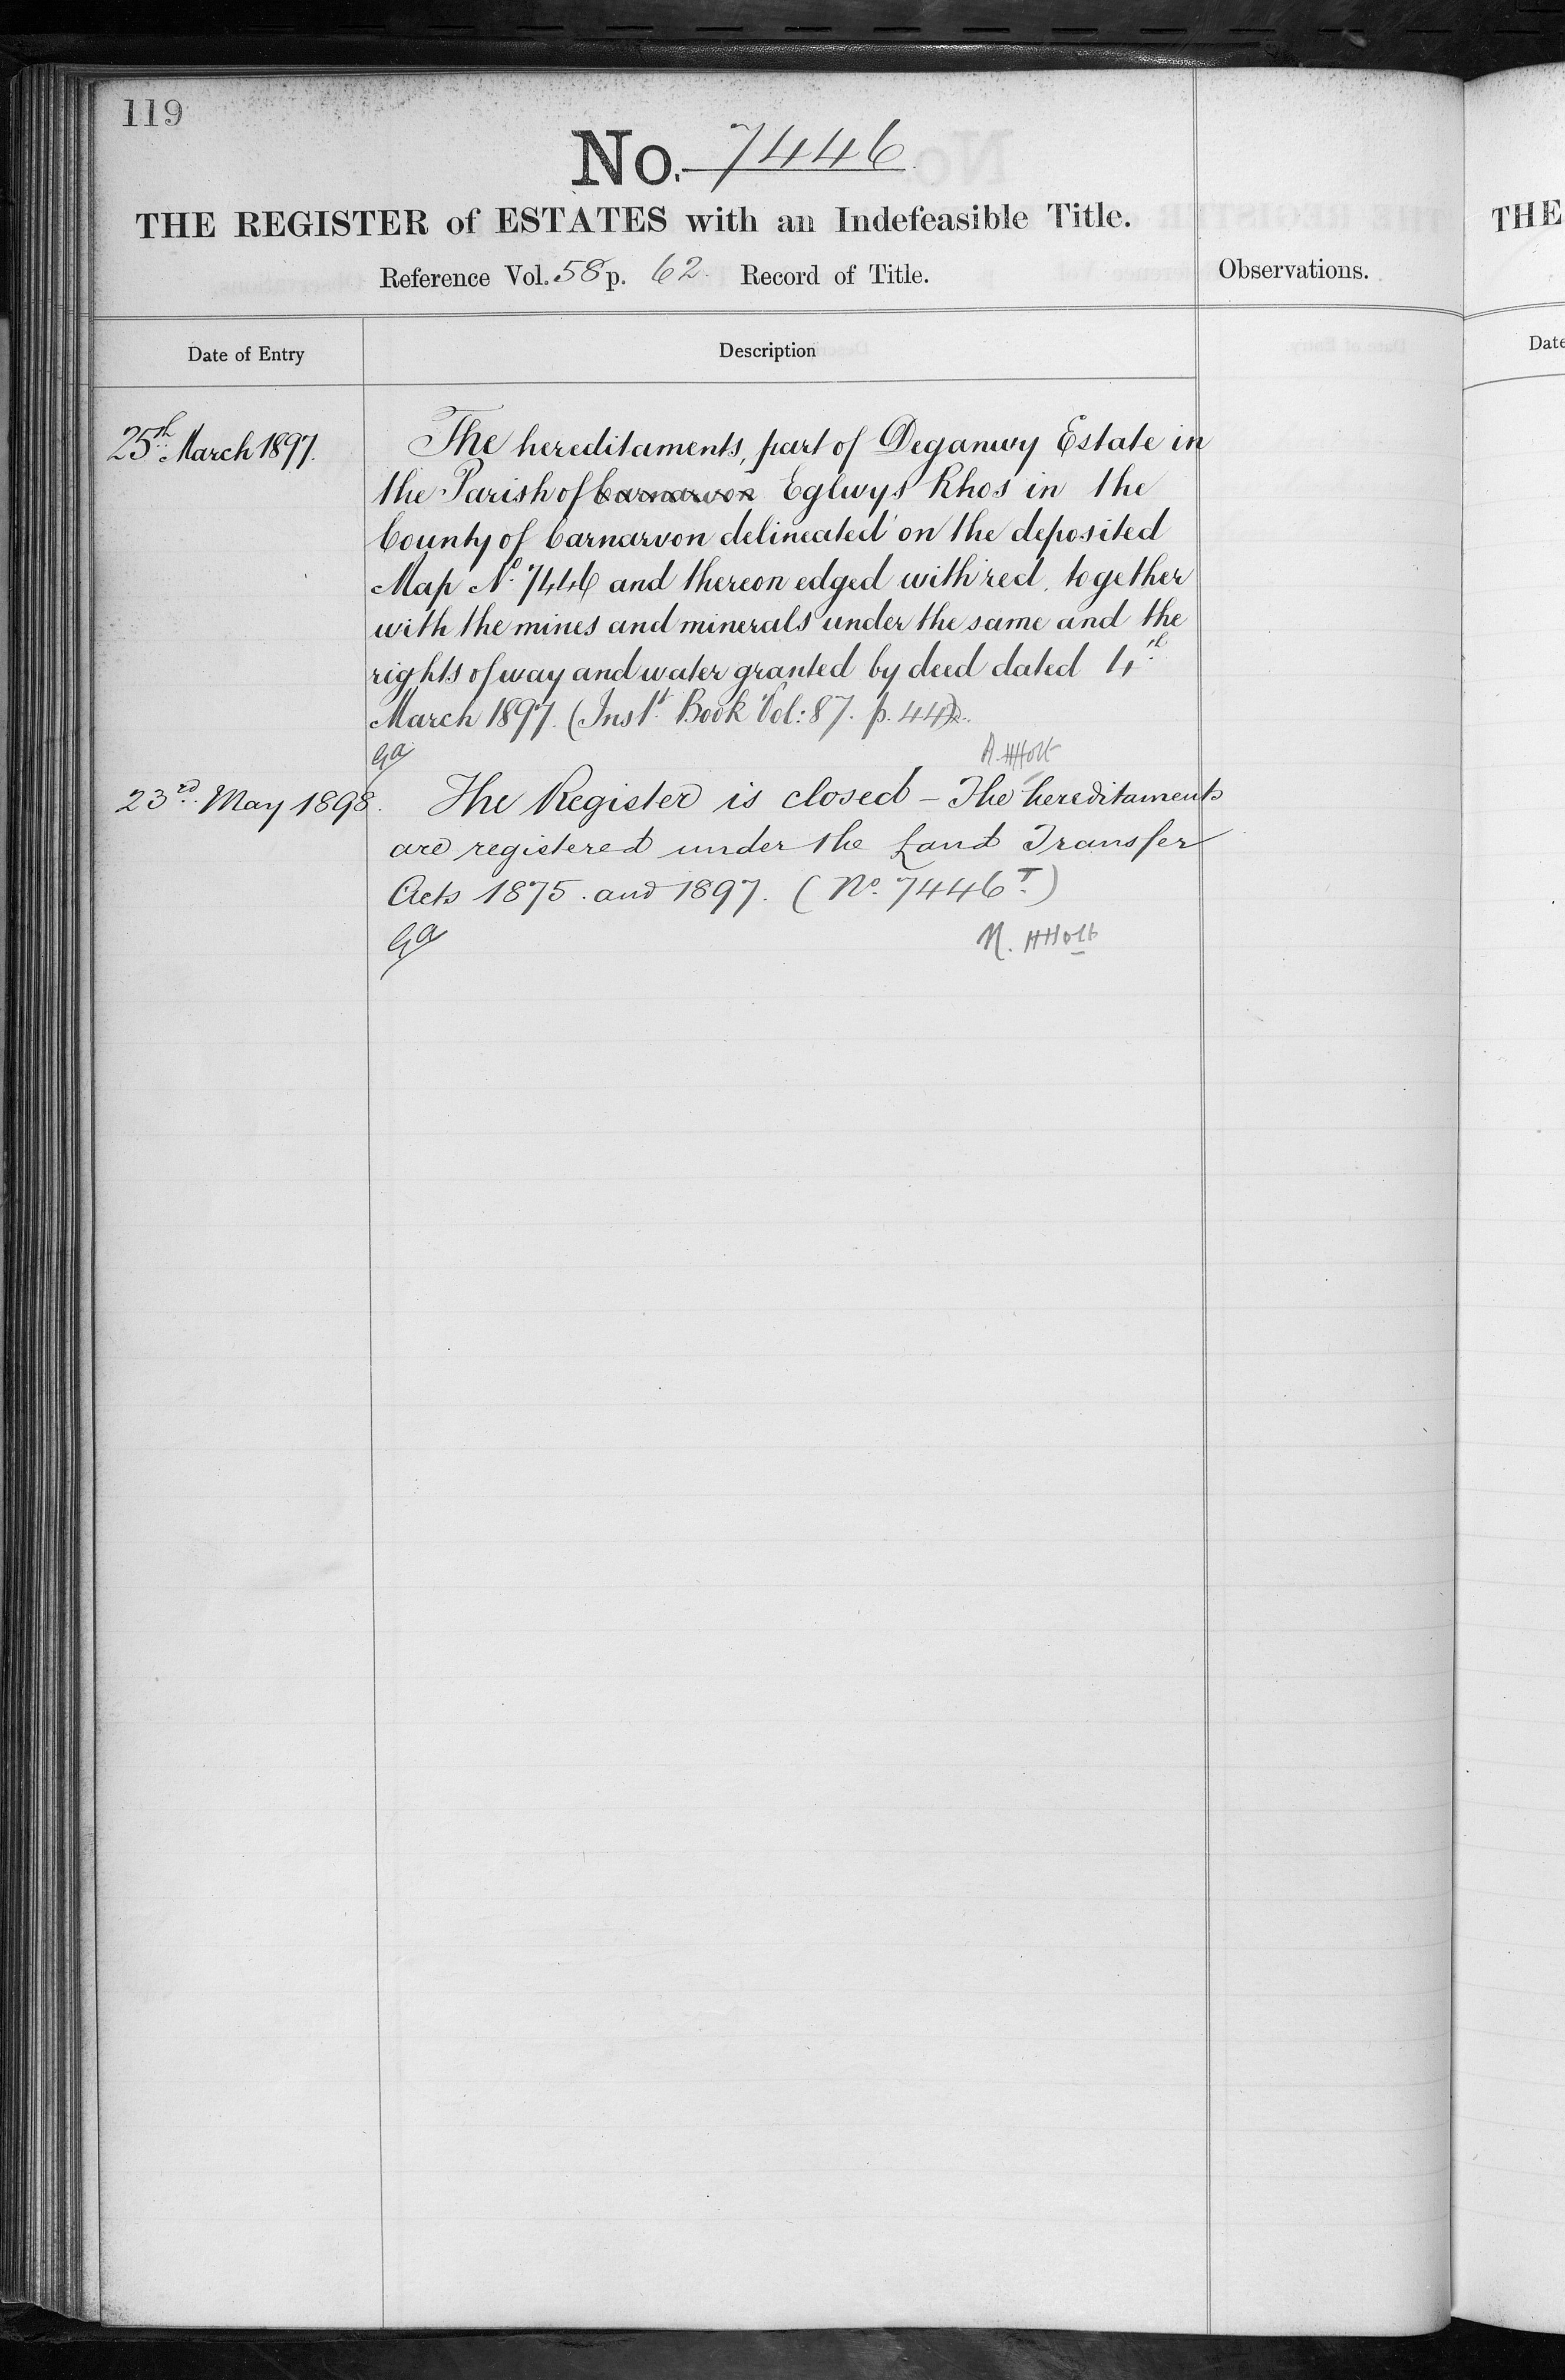 119
No. 7446
THE REGISTER of ESTATES with an Indefeasible Title.
Reference Vol. 58 p. 62 Record of Title.
Observations.
Date of Entry
Description
25th March 1897.
The hereditaments, part of Deganwy Estate in
the Parish of Carnarvon Eglwys Rhos in the
County of Carnarvon delineated on the deposited
Map No. 7446 and thereon edged with red, together
with the mines and minerals under the same and the
rights of way and water granted by deed dated 4th
March 1897. (Inst. Book Vol: 87. p. 442).
Ga
Holt
23rd May 1898.
The Register is closed – The hereditaments
are registered under the Land Transfer
Acts 1875 and 1897. (No. 7446T)
Ga
Holt
THE
Date